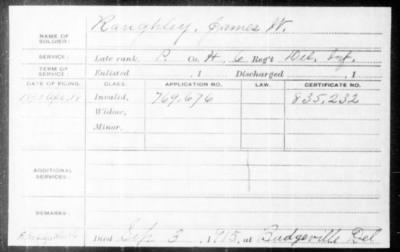 NAME OF SOLDIER: Raughley, James W.
SERVICE: Late rank, P. Co. H, 6 Reg't Del. Inf.
TERM OF SERVICE: Enlisted , 1 Discharged , 1
DATE OF FILING. CLASS. APPLICATION NO. LAW. CERTIFICATE NO.
Invalid, 769,676 835,232
Widow,
Minor,
ADDITIONAL SERVICES:
REMARKS:
Died 3, 1915, at Del